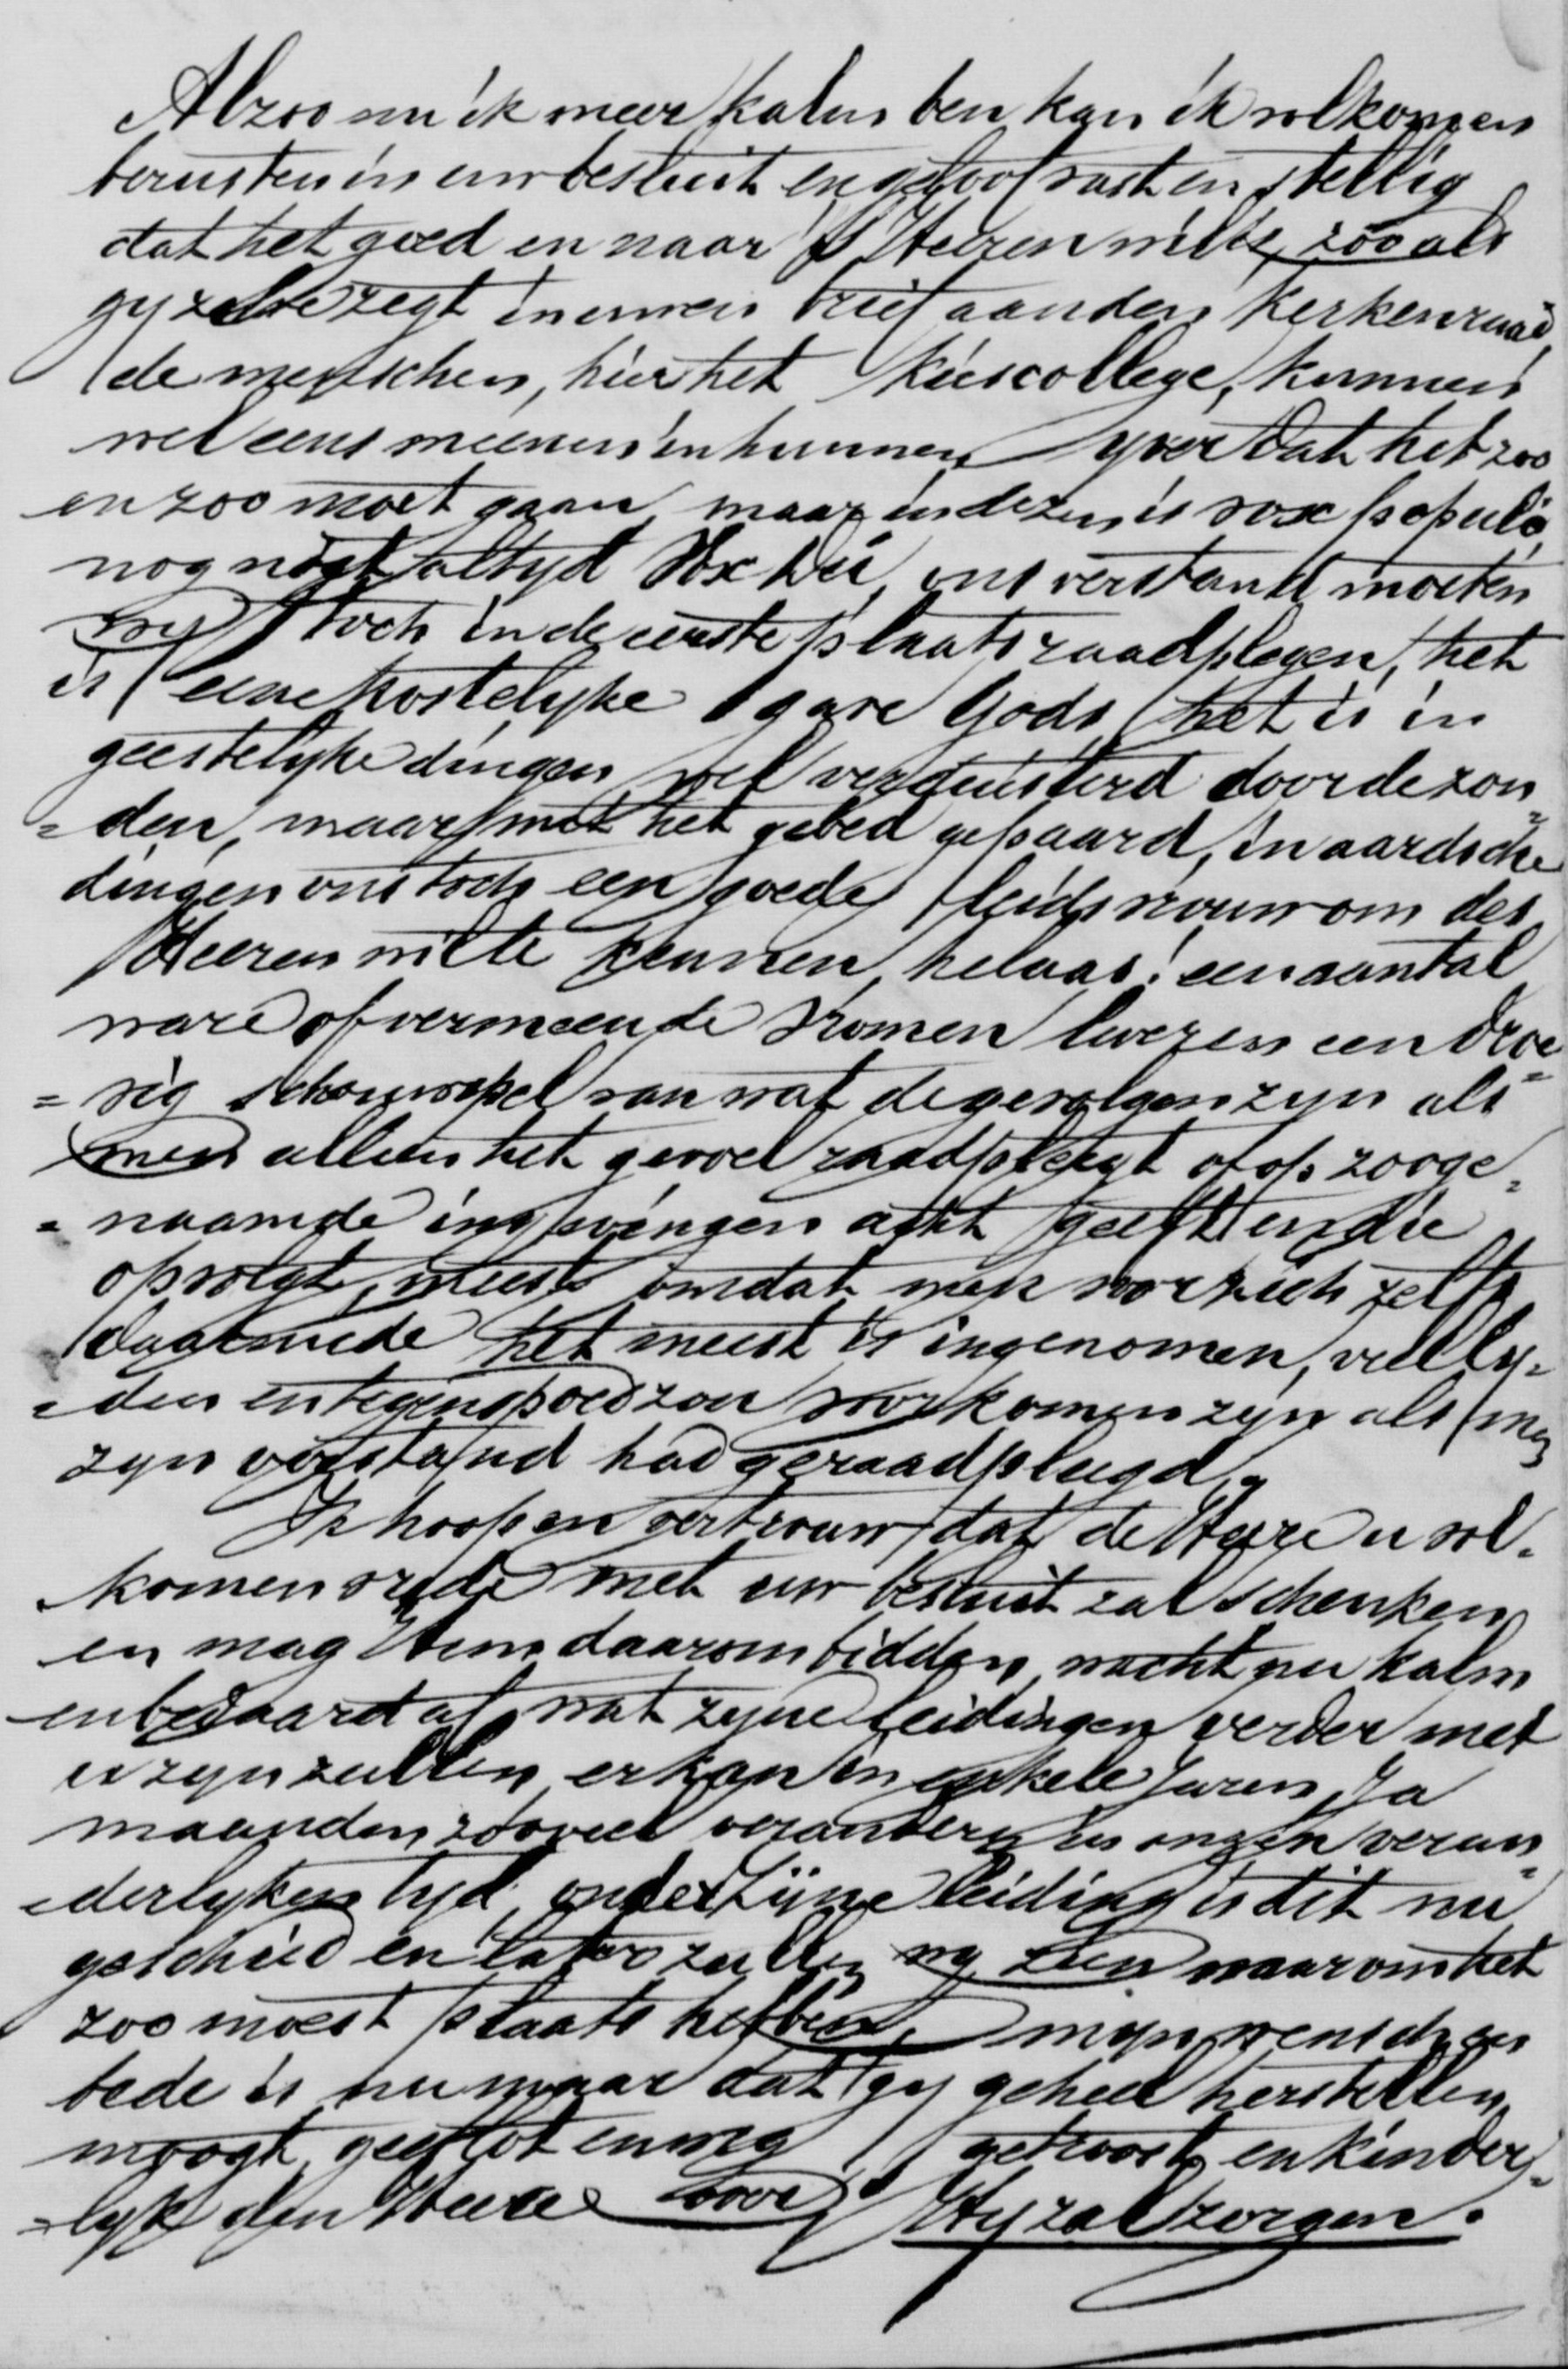 Alzoo nu ik meer kalm ben kan ik volkomen
berusten in uw besluit en geloof vast en stellig
dat het goed en naar 's Heeren wille, zooals
gy zelve zegt in uwen brief aan den Kerkenraad,
de menschen, hier het Kiescollege, kunnen
wel eens meenen in hunnen yver dat het zoo
en zoo moet gaan maar in dezen is vox populi
nog niet altyd Vox Dei, ons verstand moeten
wy toch in de eerste plaats raadplegen, het
is eene kostelyke gave Gods, het is in
geestelyke dingen wel verduisterd door de zon=
=den, maar met het gebed gepaard, in aardsche
dingen ons toch een goede leidsvrouw om des
Heeren wille te kennen, helaas! een aantal
ware of vermeende Vromen leveren een droe=
=vig schouwspel van wat de gevolgen zyn als
men alleen het gevoel raadpleegt of op zooge=
=naamde ingevingen acht geeft en die
opvolgt, meest omdat men voor zich zelf
daarmede het meest is ingenomen, veel ly=
=den en tegenspoed zou voorkomen zyn als men
zyn verstand had geraadpleegd.
Ik hoop en vertrouw dat de Heere u vol=
komen vrede met uw besluit zal schenken
en mag Hem daarom bidden, wacht nu kalm
en bedaard af wat zyne leidingen verder met
u zyn zullen, er kan in enkele Jaren, Ja
maanden zooveel veranderen in onzen veran=
=derlyken tyd, onder Zijne leiding is dit nu
geschied en later zullen wy zien waarom het
zoo moest plaats hebben, mijn wensch en
bede is nu maar dat gy geheel herstellen
moogt, getroost en kinder=
=lyk den Heere Hy zal zorgen.